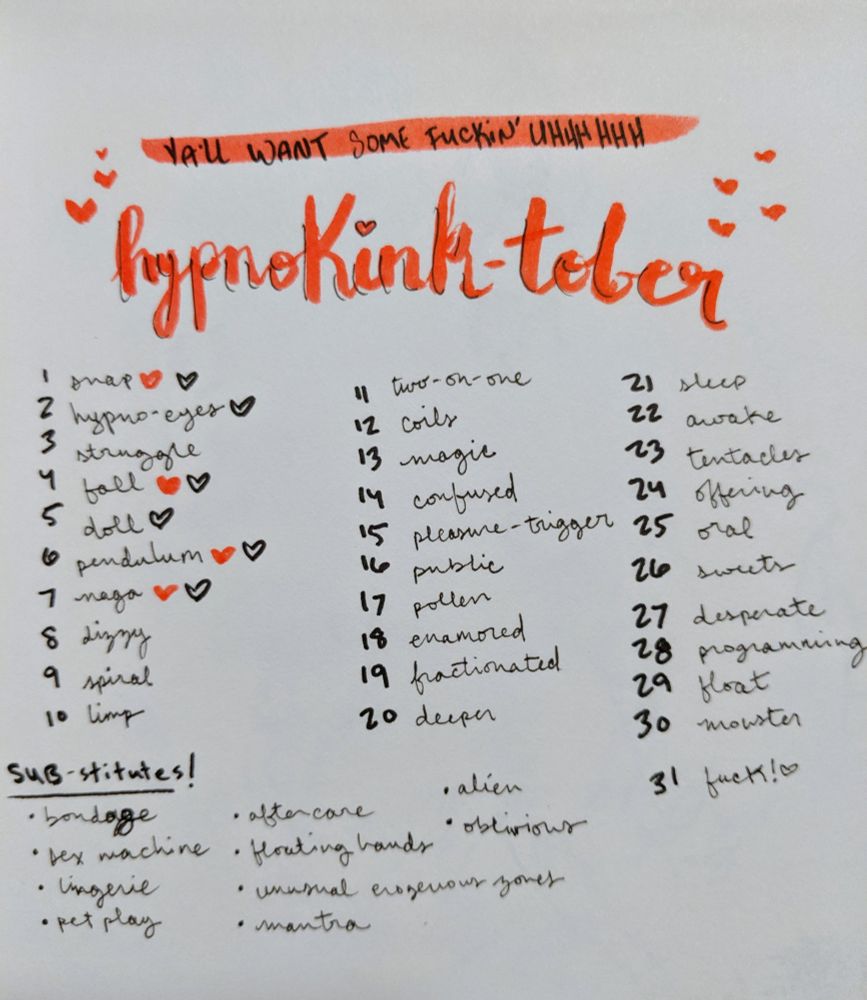 YA'LL WANT SOME FUCKIN' UHHHHHH
hypnoKink-tober
1 snap
2 hypno-eyes
3 struggle
4 fall
5 doll
6 pendulum
7 naga
8 dizzy
9 spiral
10 limp
11 two-on-one
12 coils
13 magic
14 confused
15 pleasure-trigger
16 public
17 pollen
18 enamored
19 fractionated
20 deeper
21 sleep
22 awake
23 tentacles
24 offering
25 oral
26 sweets
27 desperate
28 programming
29 float
30 monster
31 fuck!
SUB-stitutes!
• bondage
• sex machine
• lingerie
• pet play
• aftercare
• floating hands
• unusual erogenous zones
• mantra
• alien
• oblivious